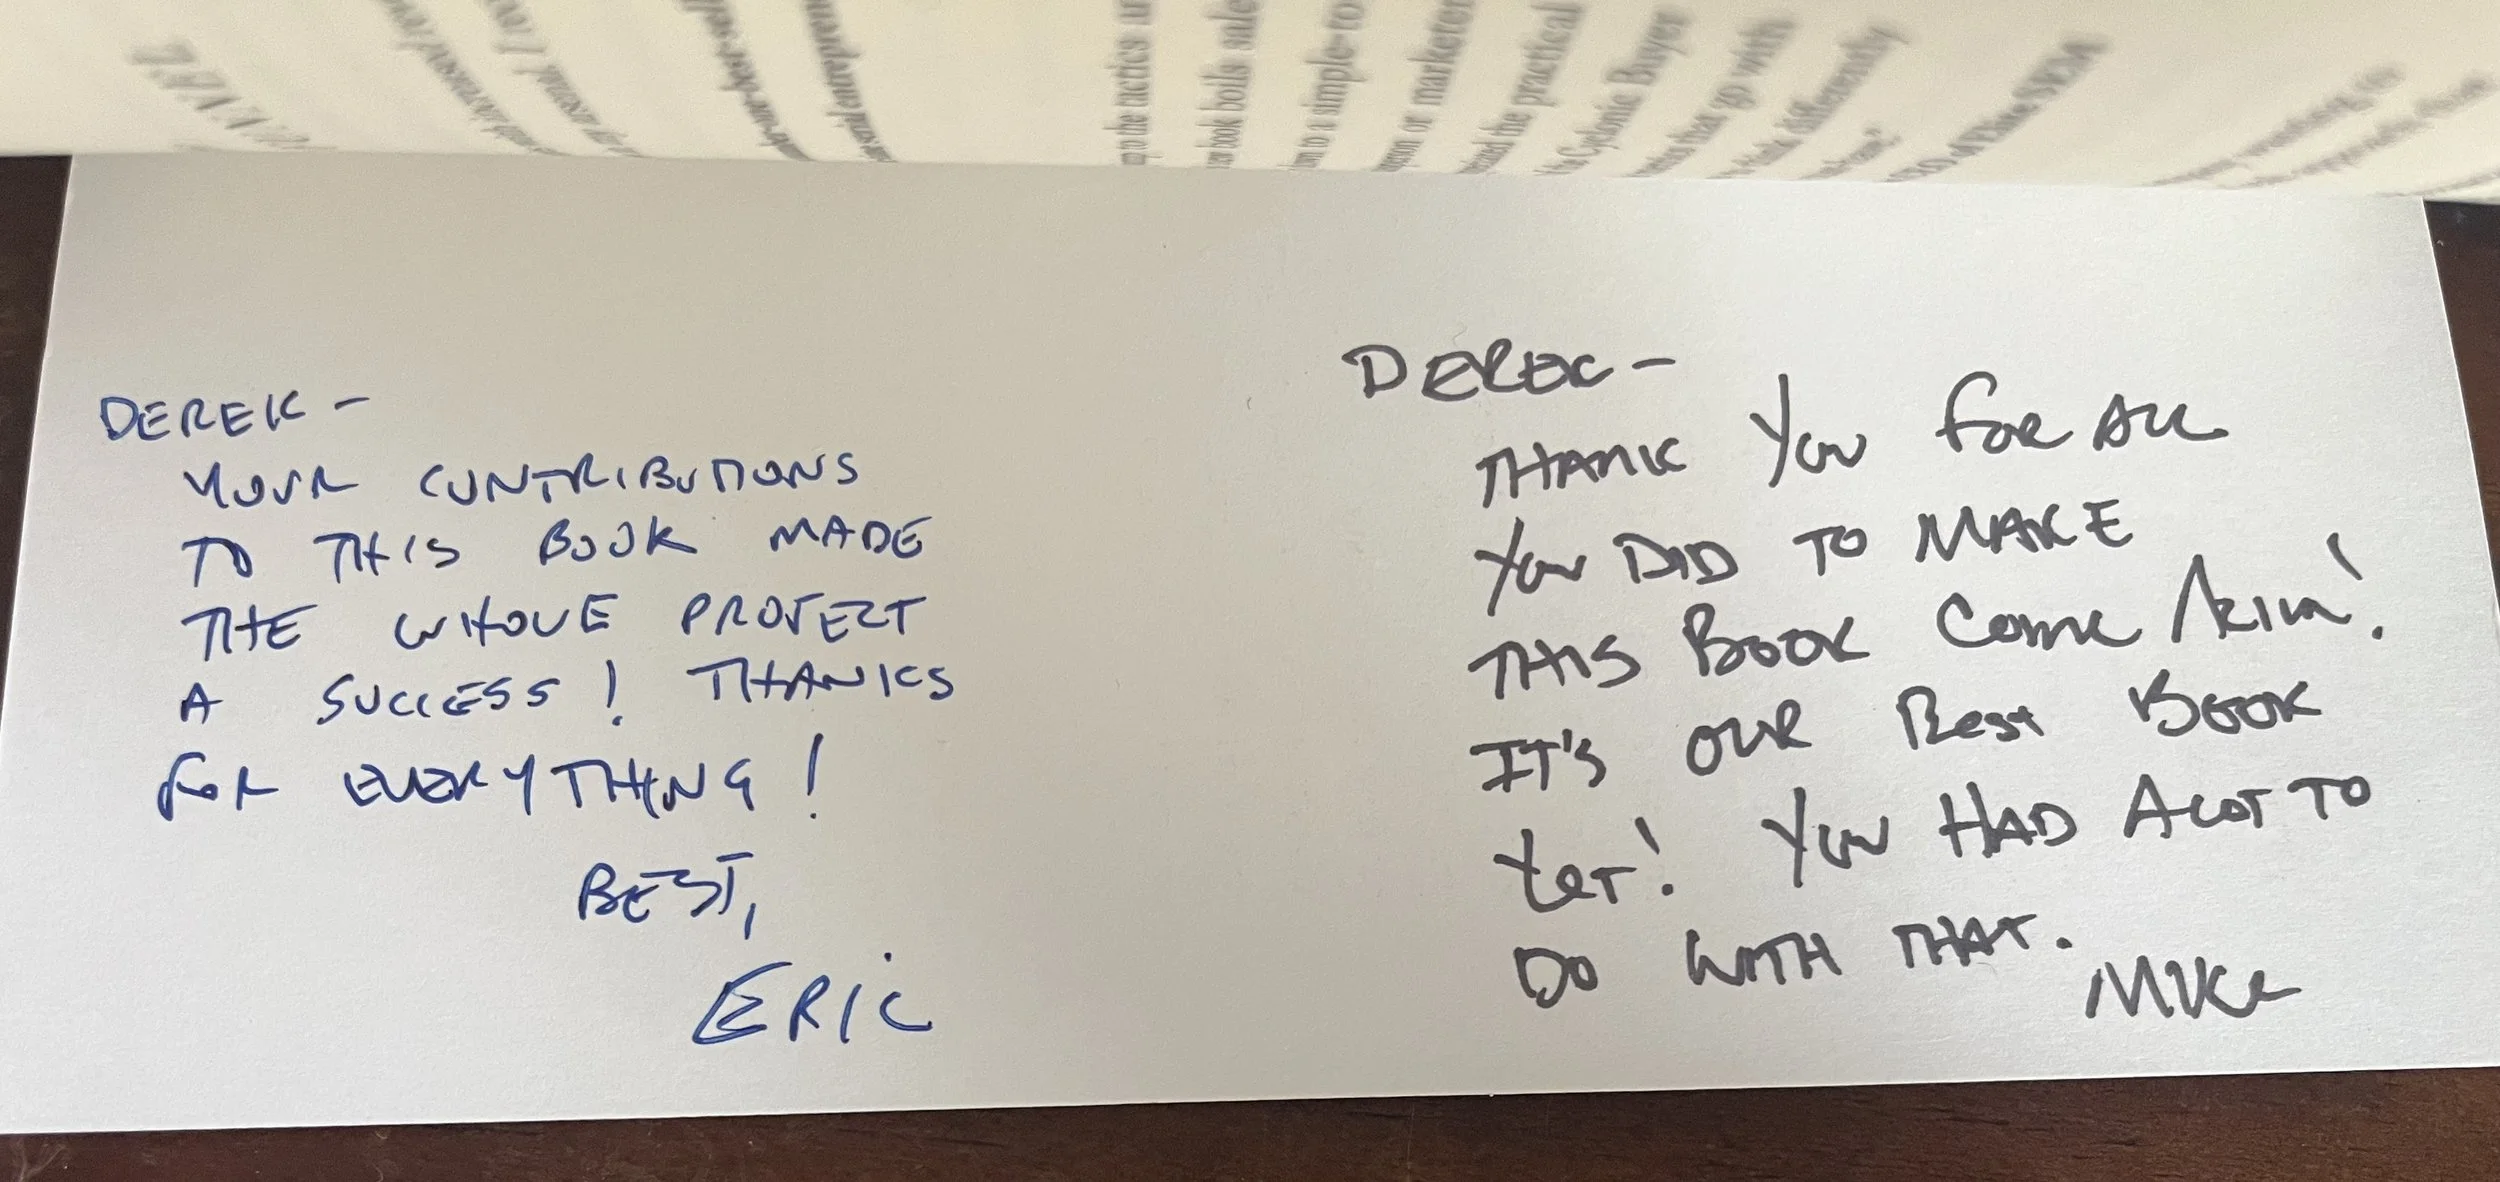 up to the tactics
book boils
to a simple-to
or marketer
the practical
Cyclonic Buyer
that go with
differently
DEREK –
YOUR CONTRIBUTIONS
TO THIS BOOK MADE
THE WHOLE PROJECT
A SUCCESS! THANKS
FOR EVERYTHING!
BEST,
ERIC
DEREK –
THANK YOU FOR ALL
YOU DID TO MAKE
THIS BOOK COME ALIVE!
IT'S OUR BEST BOOK
YET! YOU HAD A LOT TO
DO WITH THAT.
MIKE